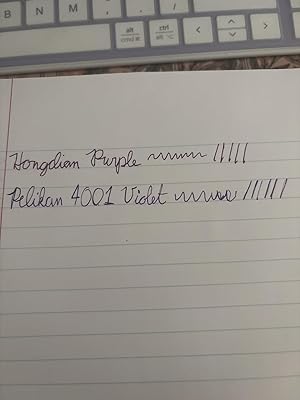 B N M < > alt ctrl ^ 
cmd ⌘ alt ⌥ < v >
Hongdian Purple
Pelikan 4001 Violet